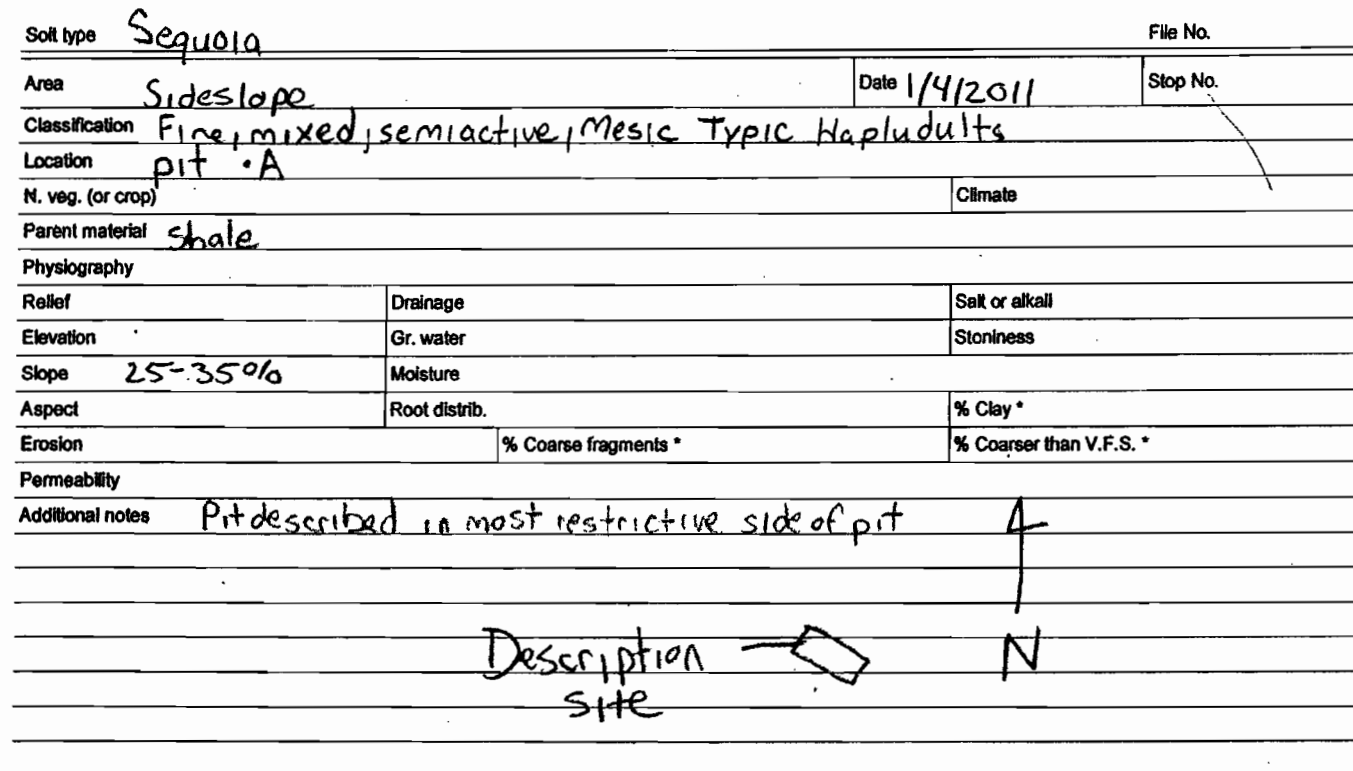 Soil type Sequoia File No.
Area Sideslope Date 1/4/2011 Stop No.
Classification Fine, mixed, semiactive, Mesic Typic Hapludults
Location pit · A
N. veg. (or crop) Climate
Parent material shale
Physiography
Relief Drainage Salt or alkali
Elevation Gr. water Stoniness
Slope 25-35% Moisture
Aspect Root distrib. % Clay *
Erosion % Coarse fragments * % Coarser than V.F.S. *
Permeability
Additional notes Pit described in most restrictive side of pit
Description N
site